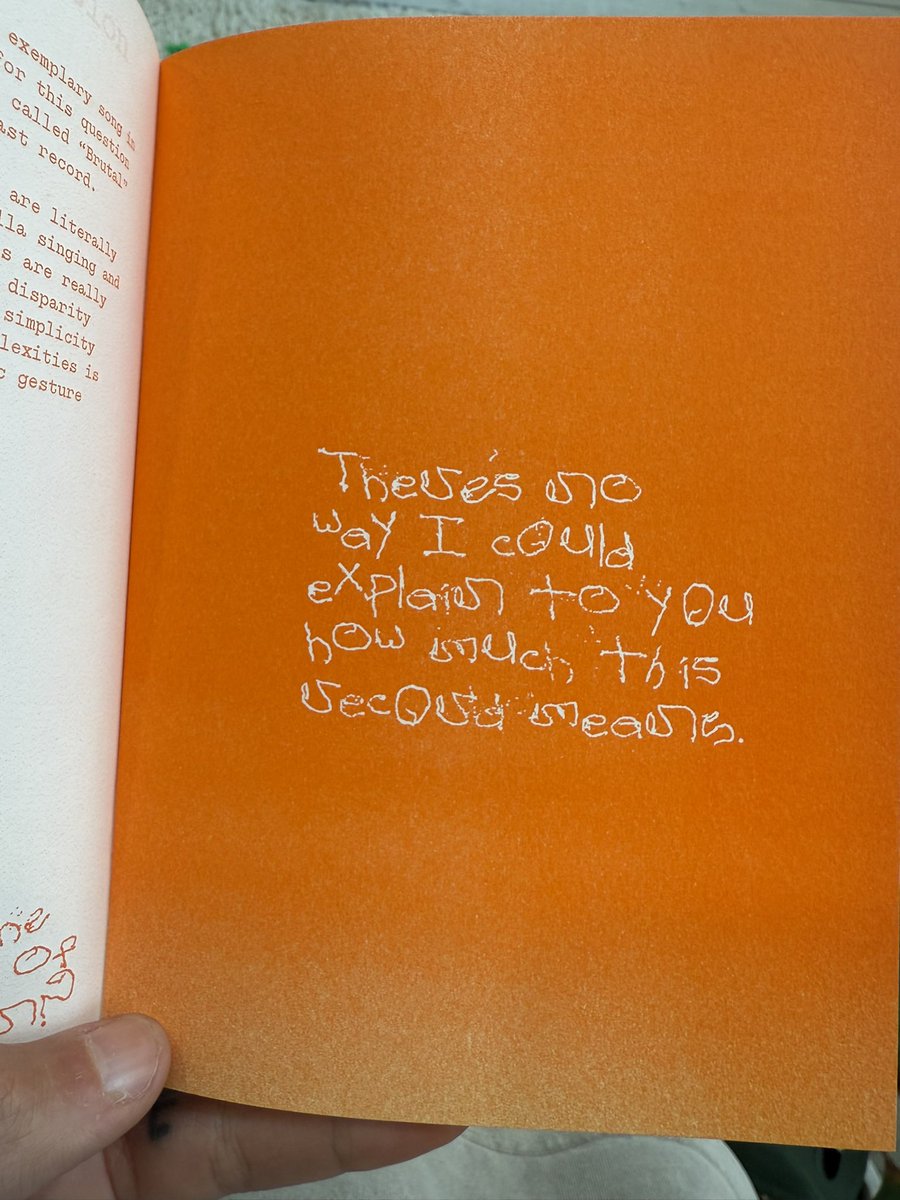 exemplary song in
for this question
called "Brutal"
ast record.
are literally
lla singing and
s are really
disparity
simplicity
lexities is
c gesture
of
There's no
way I could
explain to you
how much this
record means.